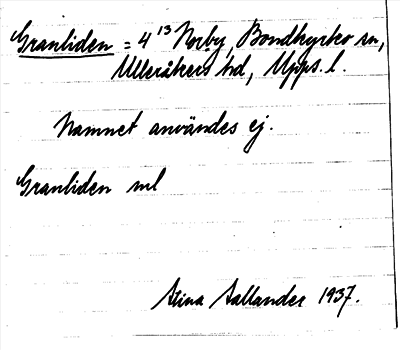 Granliden = 4¹³ Norby, Bondkyrko sn,
Ulleråkers hd, Upps. l.
Namnet användes ej.
Granliden ml
Stina Sallander 1937.